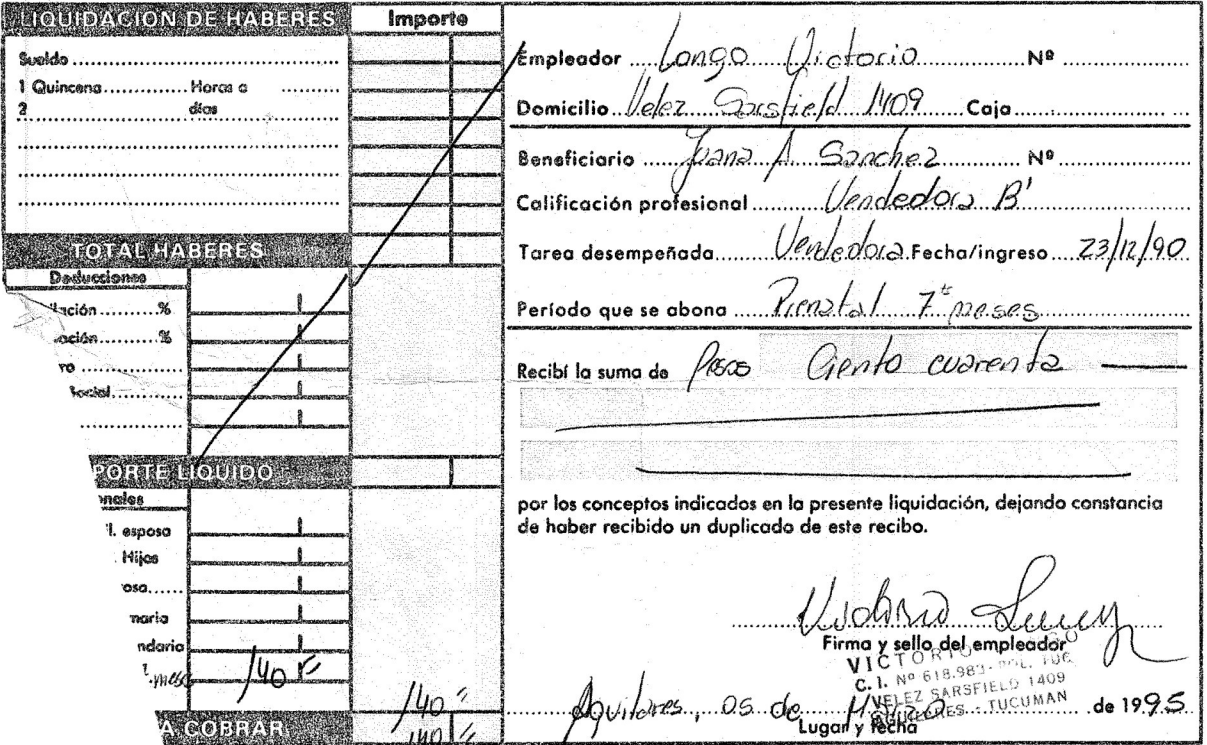 LIQUIDACION DE HABERES Importe
Sueldo
1 Quincena Horas a
2 días
TOTAL HABERES
Deducciones
ación %
ación %
ro
Social
PORTE LIQUIDO
onales
l. esposa
Hijos
osa
maria
ndaria
meses 140
140
A COBRAR 140
Empleador Longo Victorio Nº
Domicilio Velez Sarsfield 1409 Caja
Beneficiario Juana A. Sanchez Nº
Calificación profesional Vendedora B'
Tarea desempeñada Vendedora Fecha/ingreso 23/12/90
Período que se abona Prenatal 7 meses
Recibí la suma de Pesos Ciento cuarenta
por los conceptos indicados en la presente liquidación, dejando constancia
de haber recibido un duplicado de este recibo.
Firma y sello del empleador
VICTORIO
C. I. Nº 618.983 - POL. TUC
VELEZ SARSFIELD 1409
AGUILARES - TUCUMAN
Aguilares, 05 de Marzo de 1995
Lugar y fecha